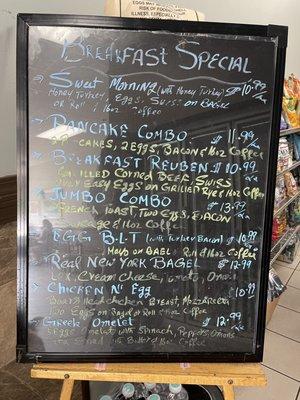 RISK OF FOOD
ILLNESS, ESPECIALLY
Breakfast Special
Sweet Morning (with Honey Turkey) $10.99
Honey Turkey, Eggs, Swiss on Bagel
or Roll & 16oz Coffee
Pancake Combo $11.99
Cakes, 2 Eggs, Bacon & 16oz Coffee
Breakfast Reuben $10.99
Grilled Corned Beef, Swiss
Over Easy Eggs on Grilled Rye & 16oz Coffee
Jumbo Combo $13.99
French Toast, Two Eggs, Bacon
Sausage & 16oz Coffee
Egg B-L-T (with Turkey Bacon) $10.99
Mayo on Bagel or Roll & 16oz Coffee
Real New York Bagel $12.99
Lox, Cream Cheese, Tomato, Onion
Chicken N' Egg 10.99
Boars Head Chicken Breast, Mozzarella
Two Eggs on Bagel or Roll & 16oz Coffee
Greek Omelet $12.99
3 Eggs Omelet with Spinach, Peppers, Onions
Feta Served with Buttered Roll & 16oz Coffee